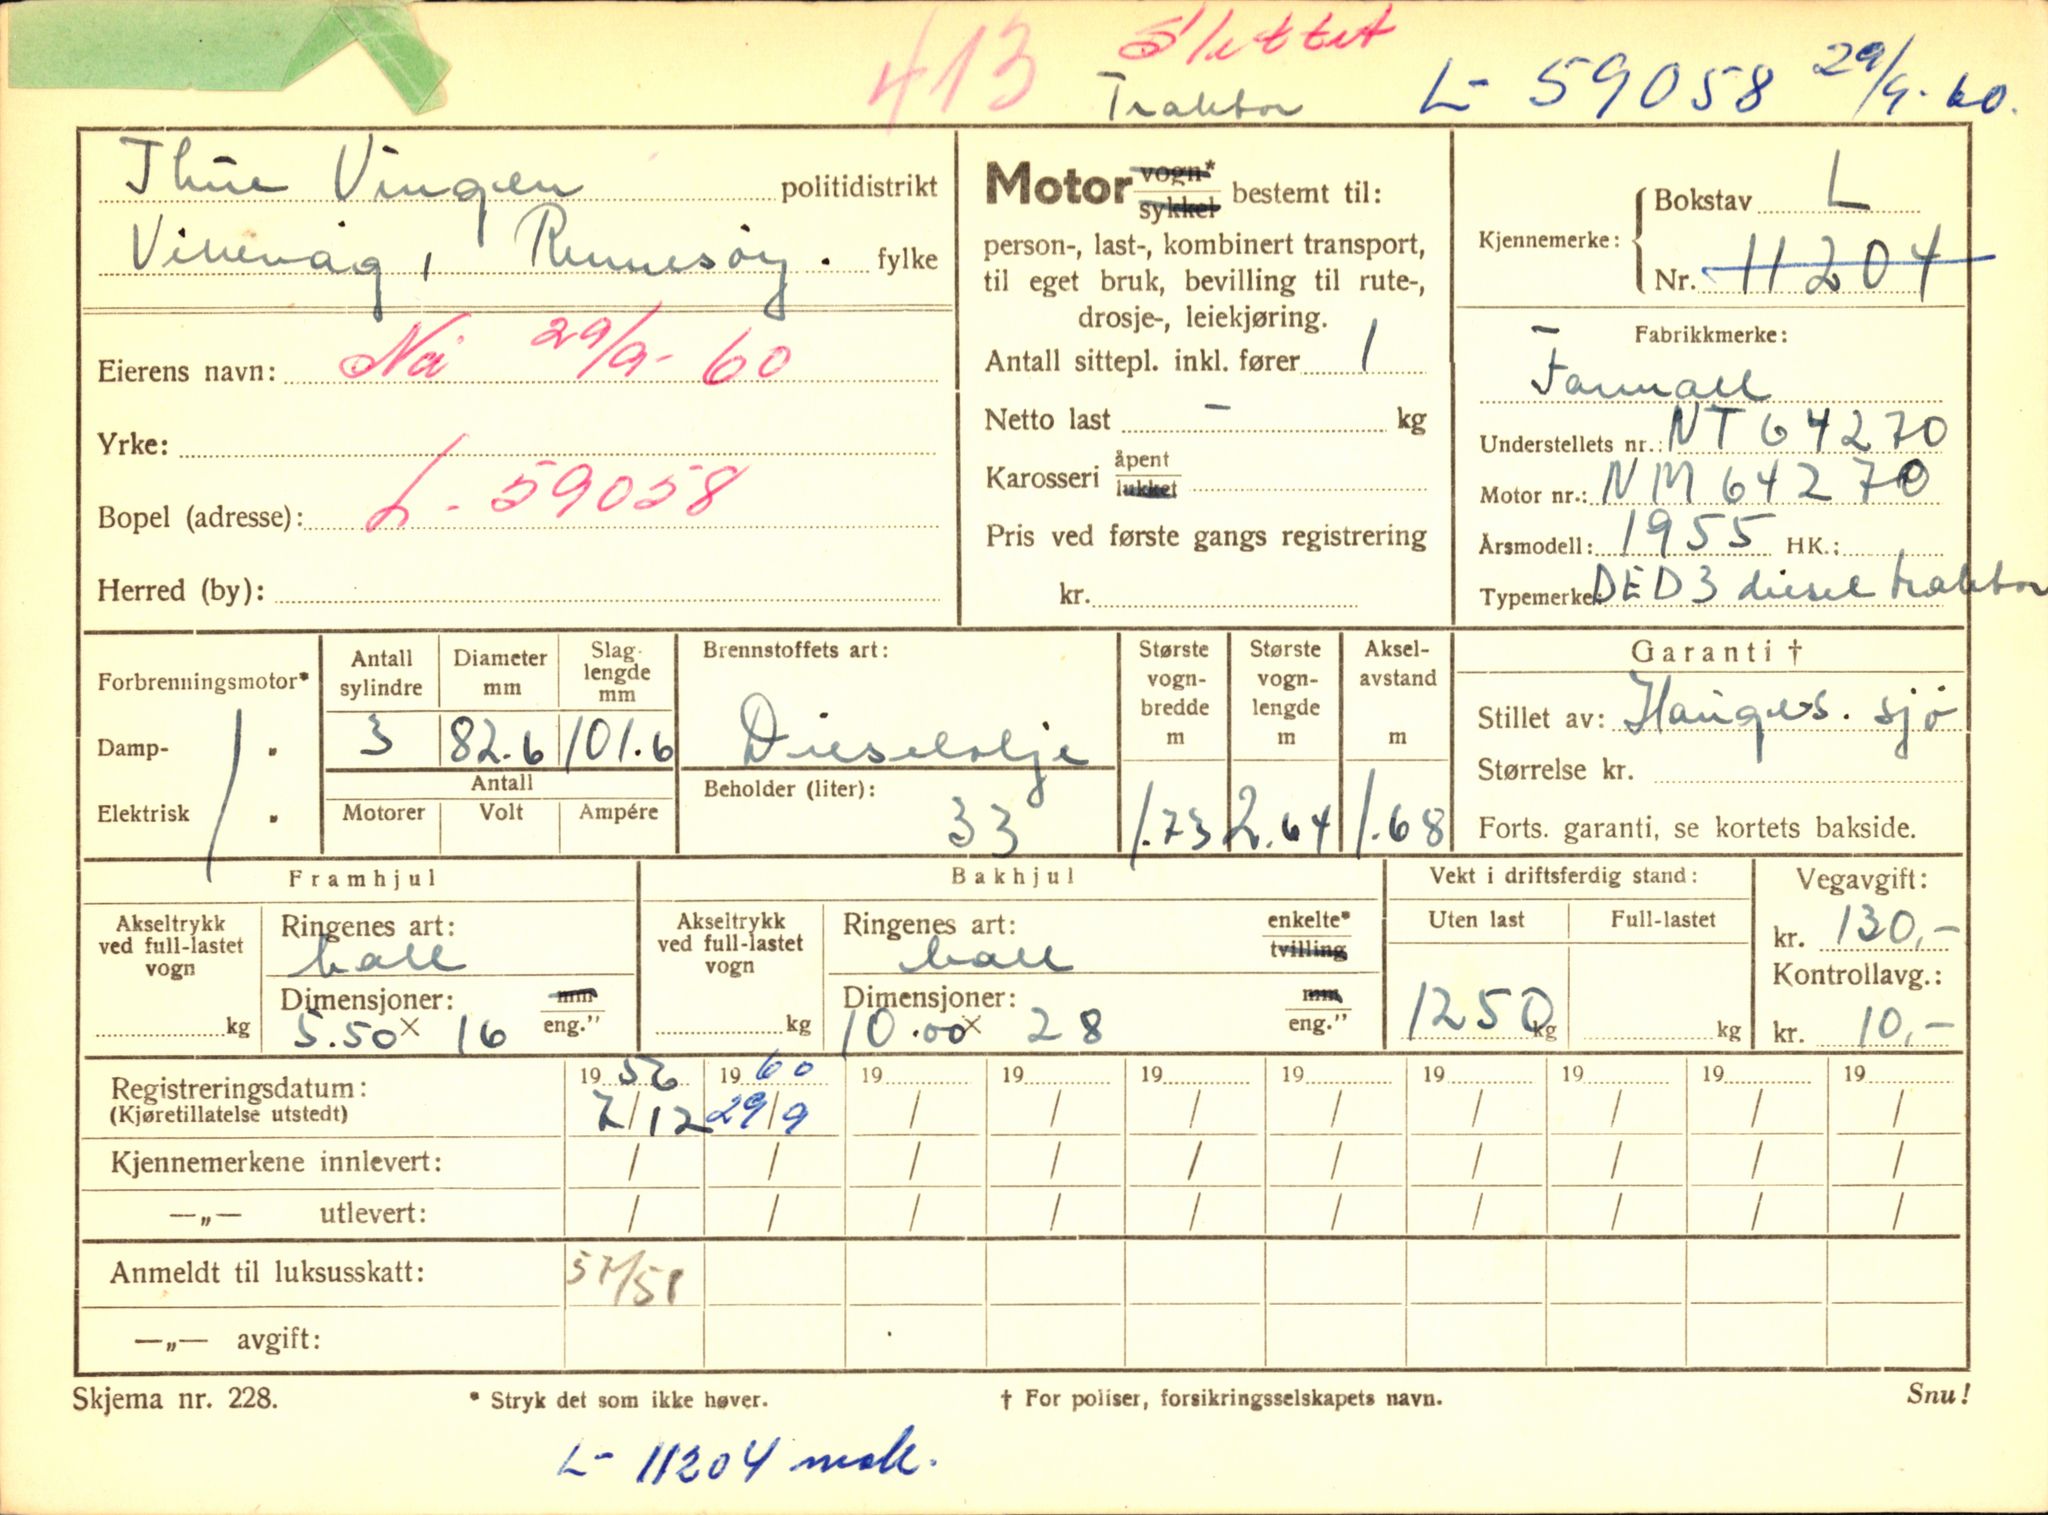 413 Slettet
Traktor L- 59058 29/9-60.
Thue Vingen politidistrikt
Vikevåg, Rennesøy. fylke
Eierens navn: Nå 29/9-60
Yrke:
Bopel (adresse): L-59058
Herred (by):
Motor vogn* sykkel bestemt til:
person-, last-, kombinert transport,
til eget bruk, bevilling til rute-,
drosje-, leiekjøring.
Antall sittepl. inkl. fører 1
Netto last - kg
Karosseri åpent lukket
Pris ved første gangs registrering
kr.
Kjennemerke: Bokstav L
Nr. 11204
Fabrikkmerke:
Farmall
Understellets nr.: NT 64270
Motor nr.: NM 64270
Årsmodell: 1955 HK.:
Typemerke: DED3 diesel traktor
Forbrenningsmotor*
Damp- "
Elektrisk "
Antall sylindre
3
Diameter mm
82.6
Slag-lengde mm
101.6
Antall
Motorer Volt Ampére
Brennstoffets art:
Dieselolje
Beholder (liter):
33
Største vogn-bredde m
1.73
Største vogn-lengde m
2.64
Aksel-avstand m
1.68
Garanti †
Stillet av: Hauges. sjø
Størrelse kr.
Forts. garanti, se kortets bakside.
Framhjul
Akseltrykk ved full-lastet vogn
kg
Ringenes art:
ball
Dimensjoner: mm eng."
5.50 x 16
Bakhjul
Akseltrykk ved full-lastet vogn
kg
Ringenes art: enkelte* tvilling
ball
Dimensjoner: mm eng."
10.00 x 28
Vekt i driftsferdig stand:
Uten last Full-lastet
1250 kg kg
Vegavgift:
kr. 130,-
Kontrollavg.:
kr. 10,-
Registreringsdatum: 19 56 19 60 19 19 19 19 19 19 19 19
(Kjøretillatelse utstedt) 7/12 29/9 / / / / / / / /
Kjennemerkene innlevert: / / / / / / / / / /
—„— utlevert: / / / / / / / / / /
Anmeldt til luksusskatt: 57/58
—„— avgift:
Skjema nr. 228. * Stryk det som ikke høver. † For poliser, forsikringsselskapets navn. Snu!
L- 11204 mak.